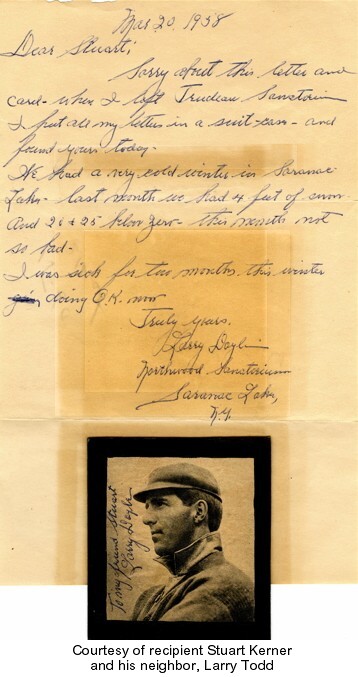 Mar 20, 1958
Dear Stuart;
Sorry about this letter and
card - when I left Trudeau Sanatorium
I put all my letters in a suit-case - and
found yours today.
We had a very cold winter in Saranac
Lake - last month we had 4 feet of snow.
And 20 & 25 below zero - this month not
so bad -
I was sick for two months this winter
doing O.K. now
Truly yours,
Larry Doyle
Northwood Sanatorium
Saranac Lake,
N.Y.
To my friend Stuart
Larry Doyle
Courtesy of recipient Stuart Kerner
and his neighbor, Larry Todd